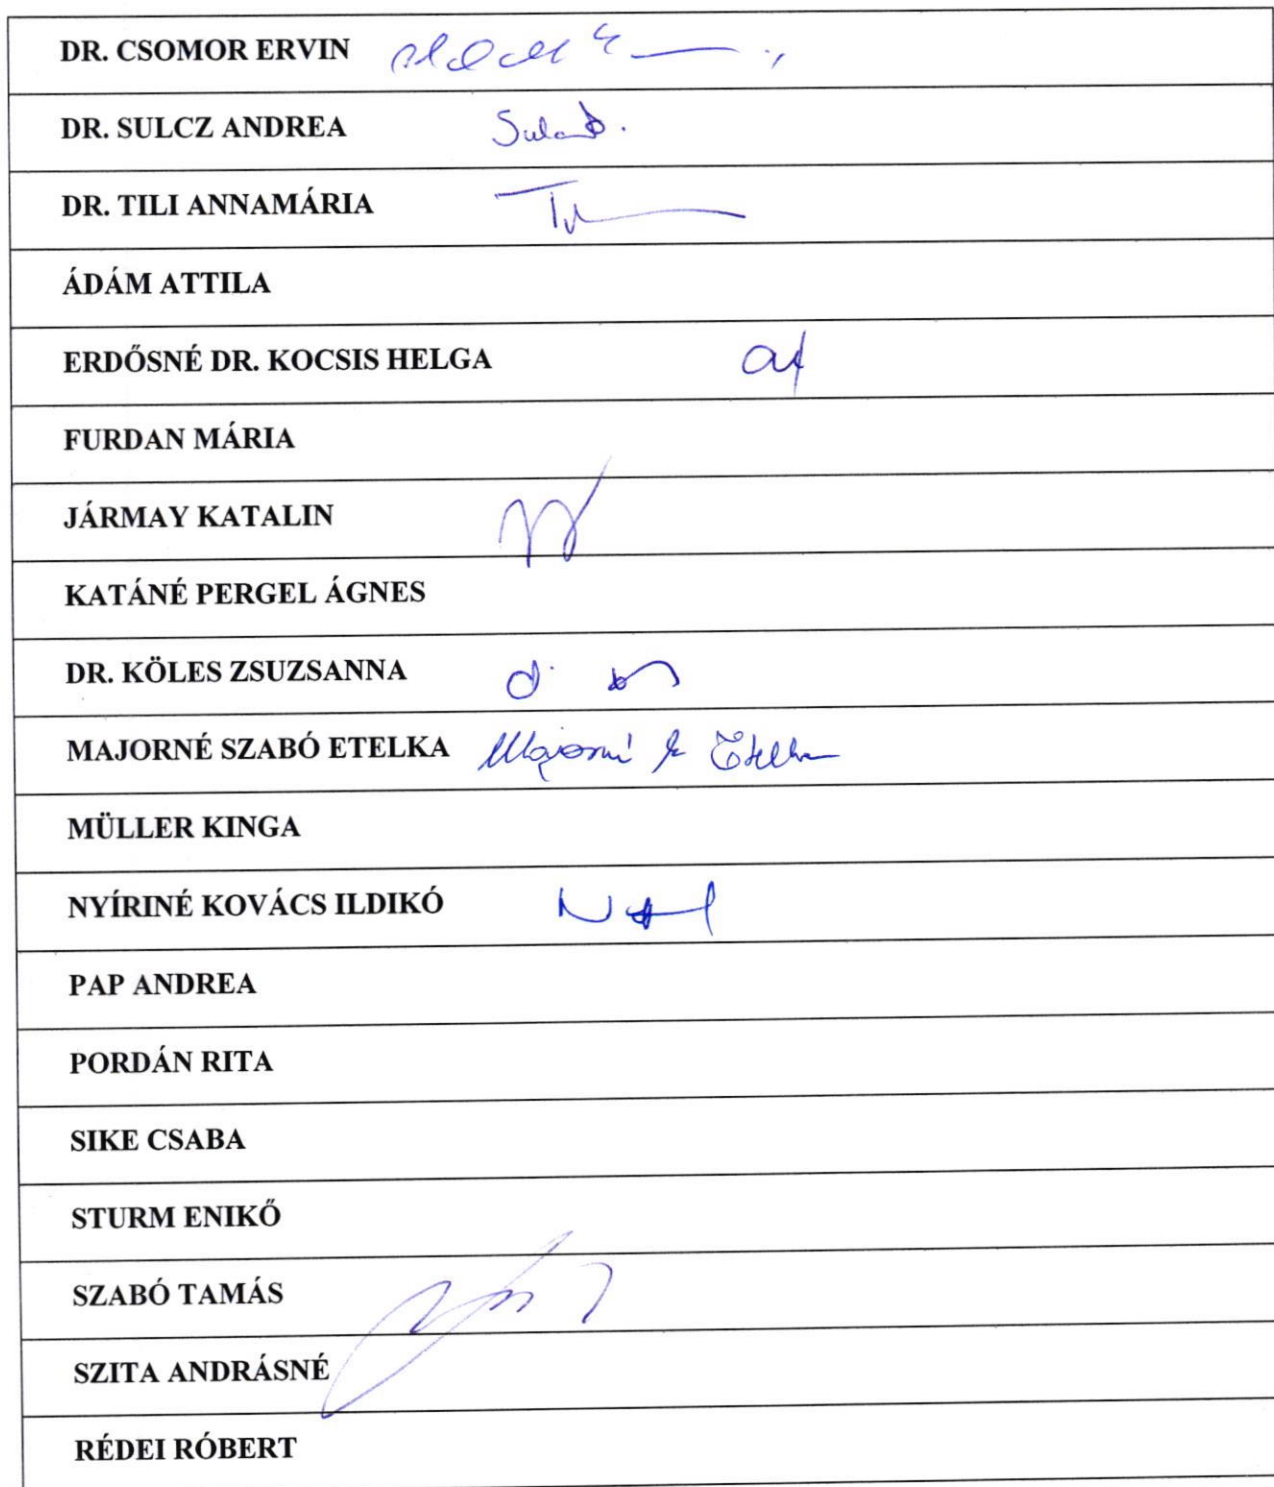 DR. CSOMOR ERVIN
DR. SULCZ ANDREA
DR. TILI ANNAMÁRIA
ÁDÁM ATTILA
ERDŐSNÉ DR. KOCSIS HELGA
FURDAN MÁRIA
JÁRMAY KATALIN
KATÁNÉ PERGEL ÁGNES
DR. KÖLES ZSUZSANNA
MAJORNÉ SZABÓ ETELKA Majorné Etelka
MÜLLER KINGA
NYÍRINÉ KOVÁCS ILDIKÓ
PAP ANDREA
PORDÁN RITA
SIKE CSABA
STURM ENIKŐ
SZABÓ TAMÁS
SZITA ANDRÁSNÉ
RÉDEI RÓBERT